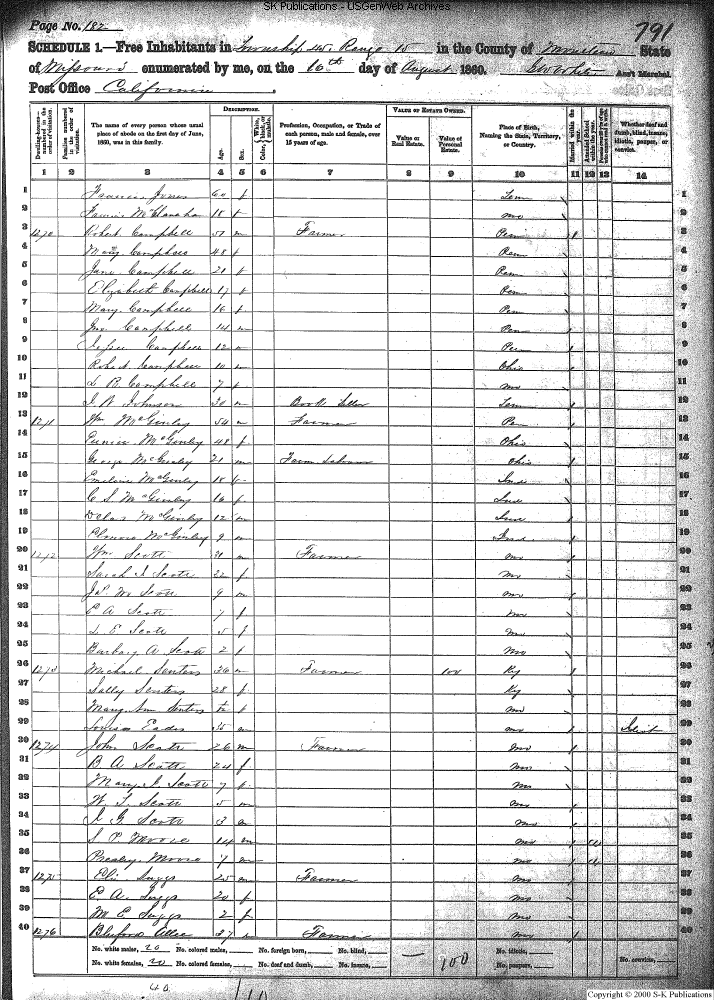 SK Publications - USGenWeb Archives
Page No. 182
791
SCHEDULE 1.—Free Inhabitants in Township 45 Range 15 in the County of Moniteau State
of Missouri enumerated by me, on the 16th day of August 1860. Ass't Marshal.
Post Office California
DESCRIPTION. VALUE OF ESTATE OWNED.
Dwelling-houses—numbered in the order of visitation. Families numbered in the order of visitation. The name of every person whose usual place of abode on the first day of June, 1860, was in this family. Age. Sex. Color, White, black, or mulatto. Profession, Occupation, or Trade of each person, male and female, over 15 years of age. Value of Real Estate. Value of Personal Estate. Place of Birth, Naming the State, Territory, or Country. Married within the year. Attended School within the year. Whether deaf and dumb, blind, insane, idiotic, pauper, or convict.
1 2 3 4 5 6 7 8 9 10 11 12 13 14
1 Francis Jones 60 f Tenn 1
2 McClanahan 18 f Mo 2
3 1270 Robert Campbell 51 m Farmer Pen 3
4 Mary Campbell 48 f Pen 4
5 Jane Campbell 21 f Pen 5
6 Elizabeth Campbell 17 f Pen 6
7 Mary Campbell 16 f Pen 7
8 Jno Campbell 14 m Pen 8
9 Campbell 12 m Pen 9
10 Robert Campbell 10 m Ohio 10
11 L B Campbell 7 f Mo 11
12 J B Johnson 30 m Book Seller Tenn 12
13 1271 Wm McGinley 54 m Farmer Pen 13
14 Eunice McGinley 48 f Ohio 14
15 George McGinley 21 m Farm Laborer Ohio 15
16 Emeline McGinley 18 f Ind 16
17 C S McGinley 16 f Ind 17
18 McGinley 12 m Ind 18
19 McGinley 9 m Ind 19
20 1272 Wm Scott 31 m Farmer Mo 20
21 Sarah J Scott 32 f Mo 21
22 Jas W Scott 9 m Mo 22
23 E A Scott 7 f Mo 23
24 L E Scott 5 f Mo 24
25 Barbary A Scott 2 f Mo 25
26 1273 Michael Senters 36 m Farmer 100 Ky 26
27 Sally Senters 28 f Ky 27
28 Mary Ann Senters f Mo 28
29 Louisa Eades 35 Mo Idiot 29
30 1274 John Scott 26 m Farmer Mo 30
31 B A Scott 24 f Mo 31
32 Mary J Scott 7 f Mo 32
33 W T Scott 5 m Mo 33
34 Scott 3 m Mo 34
35 S P Moore 14 m Mo 35
36 Presley Moore 7 m Mo 36
37 1275 Eli Suggs 25 m Farmer Mo 37
38 E A Suggs 20 f Mo 38
39 M E Suggs 2 f Mo 39
40 1276 Bluford Allee 37 Farmer Mo 40
No. white males, 20 No. colored males, No. foreign born, No. blind, No. idiotic,
No. white females, 20 No. colored females, No. deaf and dumb, No. insane, 100 No. paupers, No. convicts,
40
Copyright © 2000 S-K Publications